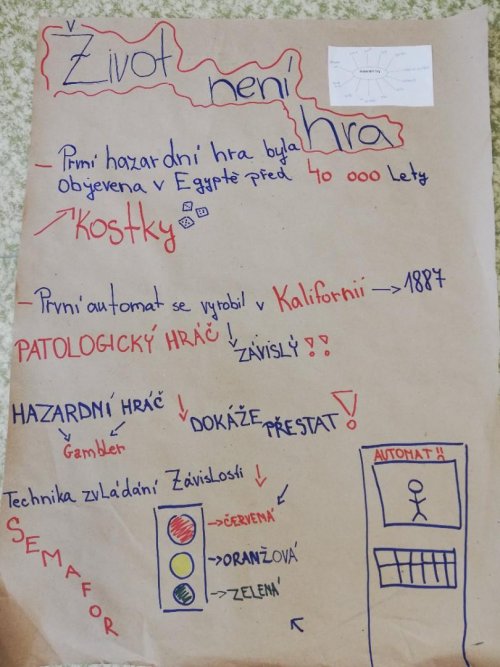 Život není hra
– První hazardní hra byla
objevena v Egyptě před 40 000 lety
Kostky
– První automat se vyrobil v Kalifornii → 1887
PATOLOGICKÝ HRÁČ
ZÁVISLÝ !!
HAZARDNÍ HRÁČ
DOKÁŽE PŘESTAT !
Gambler
Technika zvládání Závislosti
SEMAFOR
→ ČERVENÁ
→ ORANŽOVÁ
→ ZELENÁ
AUTOMAT !!